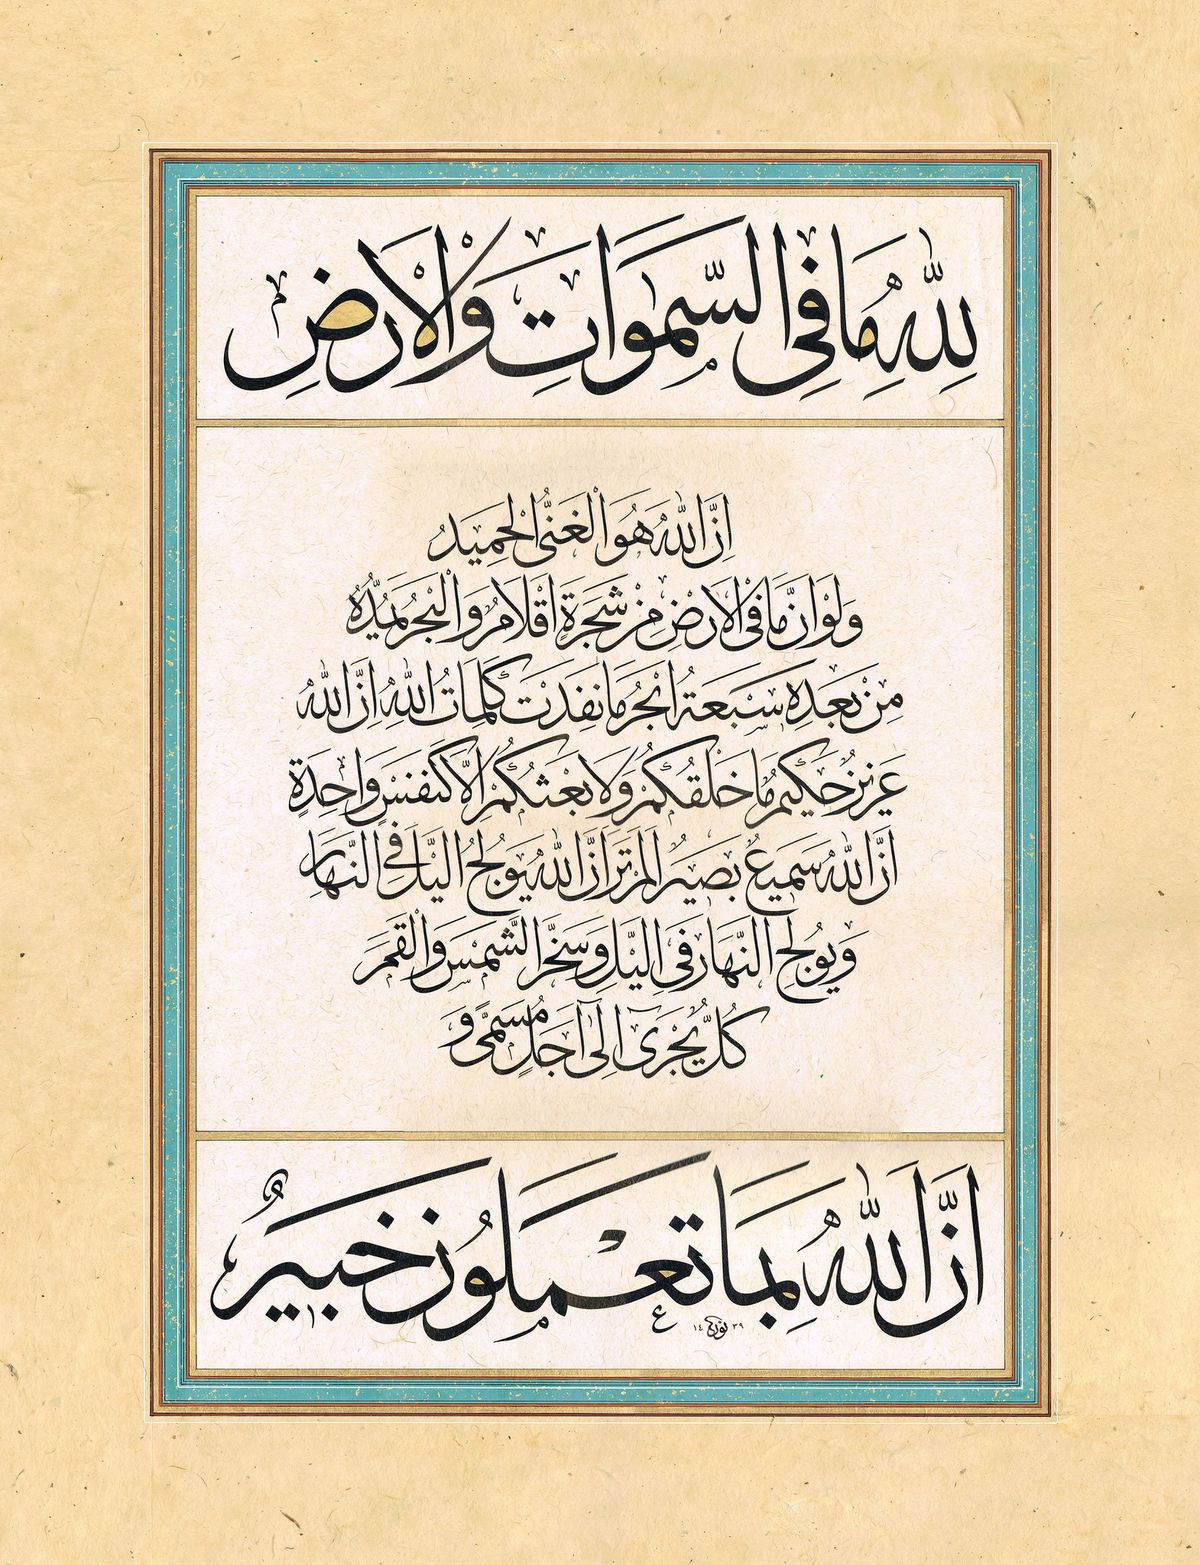 لِلّٰهِ مَا فِي السَّمٰوَاتِ وَالْاَرْضِ
اِنَّ اللّٰهَ هُوَ الْغَنِيُّ الْحَمِيدُ
وَلَوْ اَنَّ مَا فِي الْاَرْضِ مِنْ شَجَرَةٍ اَقْلَامٌ وَالْبَحْرُ يَمُدُّهُ
مِنْ بَعْدِهِ سَبْعَةُ اَبْحُرٍ مَا نَفِدَتْ كَلِمَاتُ اللّٰهِ اِنَّ اللّٰهَ
عَزِيزٌ حَكِيمٌ مَا خَلْقُكُمْ وَلَا بَعْثُكُمْ اِلَّا كَنَفْسٍ وَاحِدَةٍ
اِنَّ اللّٰهَ سَمِيعٌ بَصِيرٌ اَلَمْ تَرَ اَنَّ اللّٰهَ يُولِجُ الَّيْلَ فِي النَّهَارِ
وَيُولِجُ النَّهَارَ فِي الَّيْلِ وَسَخَّرَ الشَّمْسَ وَالْقَمَرَ
كُلٌّ يَجْرِي اِلٰى اَجَلٍ مُسَمًّى وَ
اَنَّ اللّٰهَ بِمَا تَعْمَلُونَ خَبِيرٌ
١٤ ٣٩